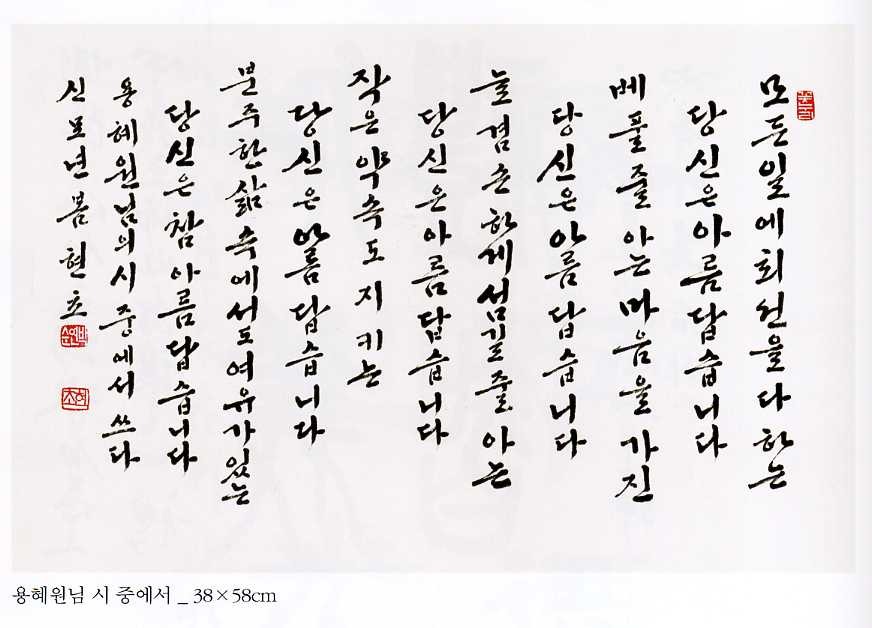 모든 일에 최선을 다 하는
당신은 아름답습니다
베풀 줄 아는 마음을 가진
당신은 아름답습니다
늘 겸손하게 섬길 줄 아는
당신은 아름답습니다
작은 약속도 지키는
당신은 아름답습니다
분주한 삶 속에서도 여유가 있는
당신은 참 아름답습니다
용혜원님의 시 중에서 쓰다
신묘년 봄 현초
용혜원님 시 중에서 _ 38×58cm